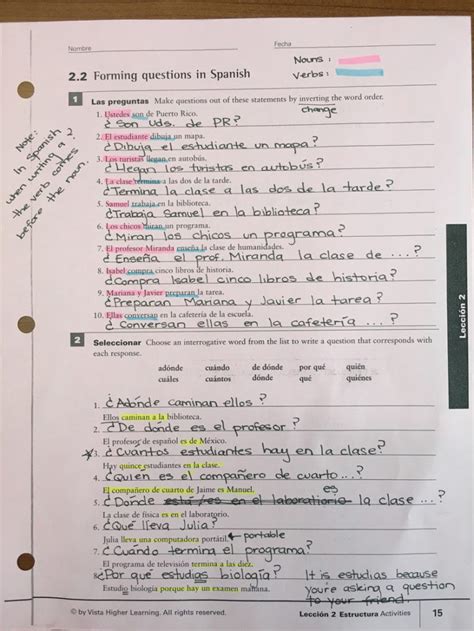 Nombre
Fecha
Nouns :
Verbs :
2.2 Forming questions in Spanish
1 Las preguntas Make questions out of these statements by inverting the word order.
change
1. Ustedes son de Puerto Rico.
¿ Son Uds. de PR?
2. El estudiante dibuja un mapa.
¿Dibuja el estudiante un mapa?
3. Los turistas llegan en autobús.
¿Llegan los turistas en autobús?
4. La clase termina a las dos de la tarde.
¿Termina la clase a las dos de la tarde?
5. Samuel trabaja en la biblioteca.
¿Trabaja Samuel en la biblioteca?
6. Los chicos miran un programa.
¿Miran los chicos un programa?
7. El profesor Miranda enseña la clase de humanidades.
¿Enseña el prof. Miranda la clase de ...?
8. Isabel compra cinco libros de historia.
¿Compra Isabel cinco libros de historia?
9. Mariana y Javier preparan la tarea.
¿Preparan Mariana y Javier la tarea?
10. Ellas conversan en la cafetería de la escuela.
¿Conversan ellas en la cafetería ...?
Note:
In Spanish
when writing a ?
the verb comes
before the noun.
2 Seleccionar Choose an interrogative word from the list to write a question that corresponds with
each response.
adónde cuándo de dónde por qué quién
cuáles cuántos dónde qué quiénes
1. ¿Adónde caminan ellos?
Ellos caminan a la biblioteca.
2. ¿De dónde es el profesor?
El profesor de español es de México.
3. ¿Cuántos estudiantes hay en la clase?
Hay quince estudiantes en la clase.
4. ¿Quién es el compañero de cuarto ...?
El compañero de cuarto de Jaime es Manuel.
es
5. ¿Dónde está/es en el laboratorio la clase ...?
La clase de física es en el laboratorio.
6. ¿Qué lleva Julia?
portable
Julia lleva una computadora portátil.
7. ¿Cuándo termina el programa?
El programa de televisión termina a las diez.
8. ¿Por qué estudias biología?
Estudio biología porque hay un examen mañana.
It is estudias because
you're asking a question
to your friend.
Lección 2
© by Vista Higher Learning. All rights reserved.
Lección 2 Estructura Activities 15